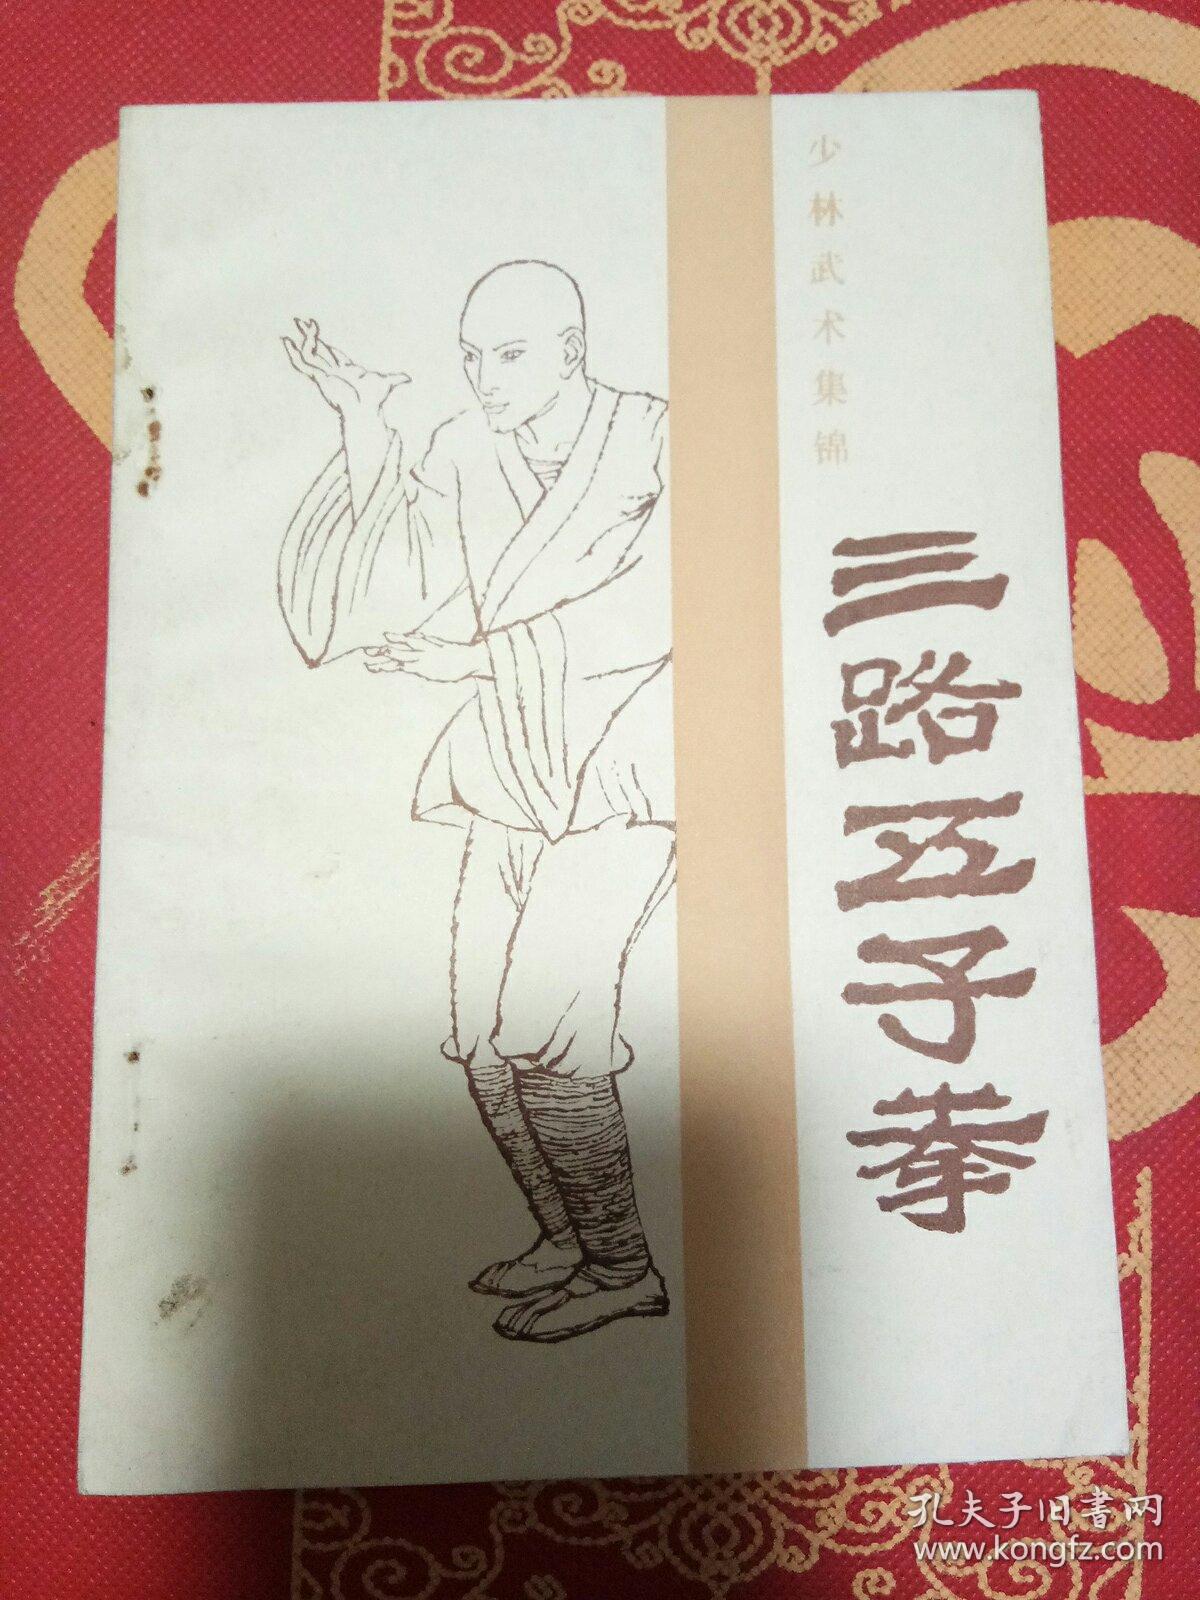 少林武术集锦
三路五子拳
孔夫子旧書网
www.kongfz.com